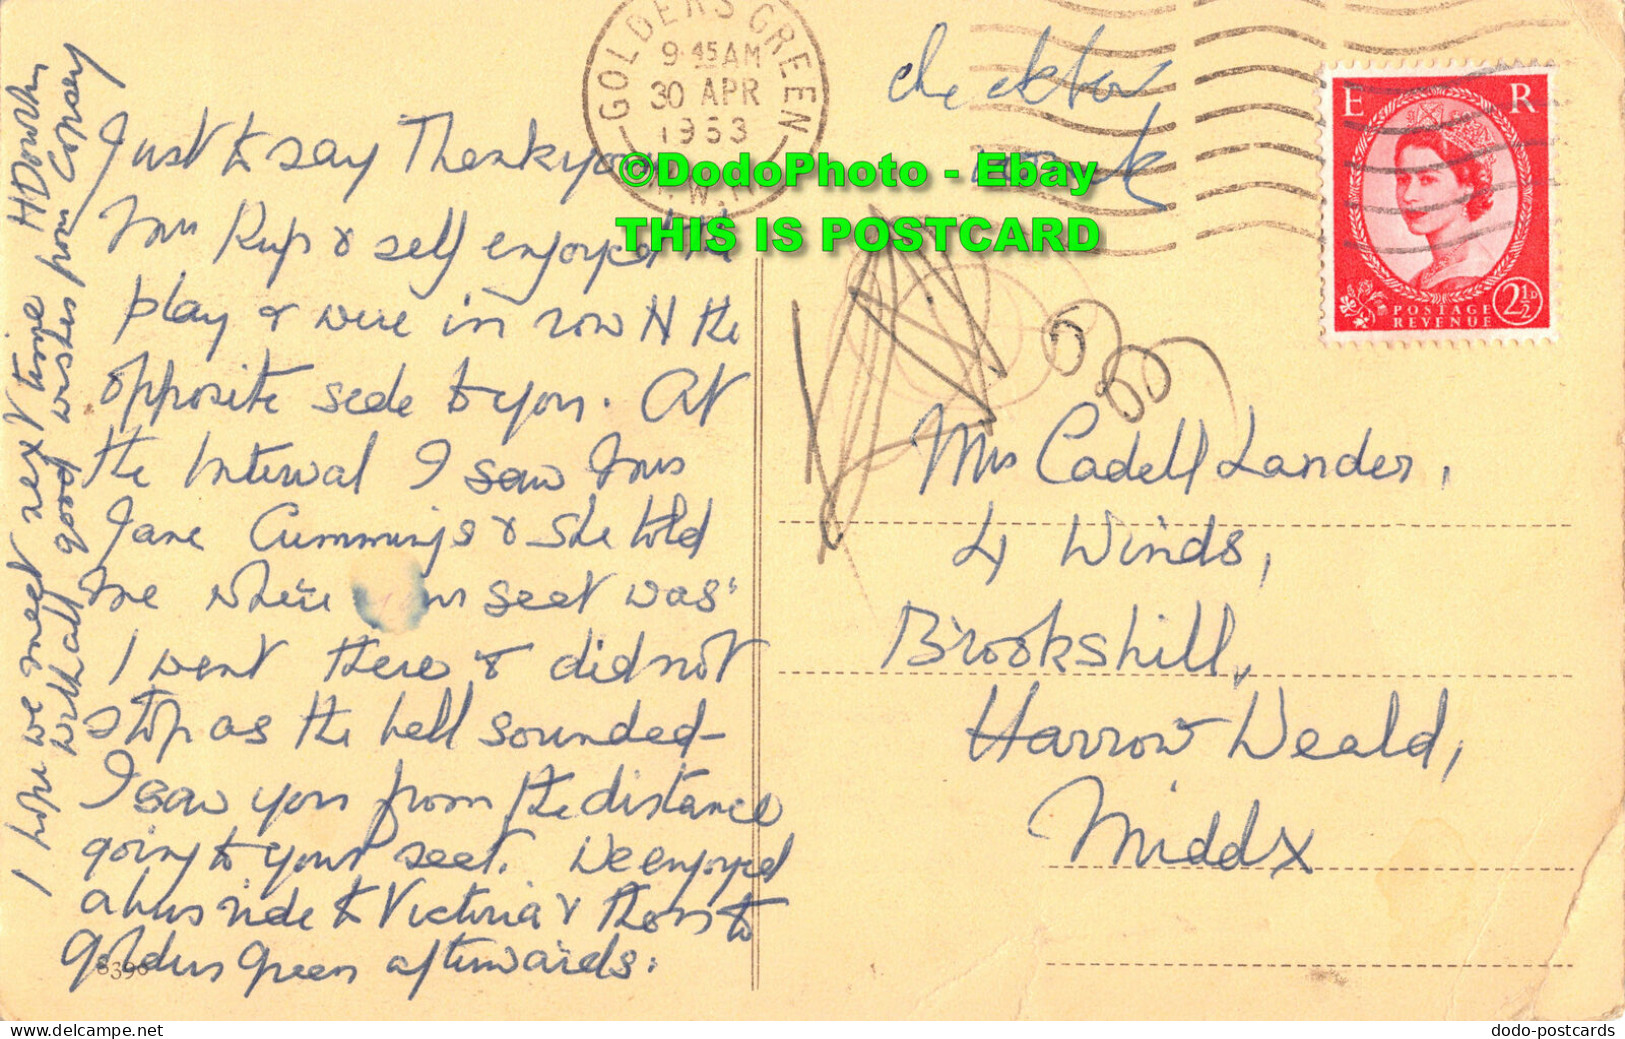 GOLDERS GREEN
9.45 AM
30 APR
1953
N.W.11
E R
POSTAGE
REVENUE
2½D
©DodoPhoto - Ebay
THIS IS POSTCARD
Just to say Thankyou
Rup & self enjoyed the
play & were in row H the
opposite side to you. At
the Interval I saw Mrs
Jane Cummings & she told
me where your seat was.
I went there & did not
stop as the bell sounded—
I saw you from the distance
going to your seat. We enjoyed
a bus ride to Victoria & then to
Golders Green afterwards.
I hope we meet next time
with all good wishes from
Mrs Cadell Lander,
4 Winds,
Brookshill,
Harrow Weald,
Middx
6396
dodo-postcards
Posted on www.delcampe.net